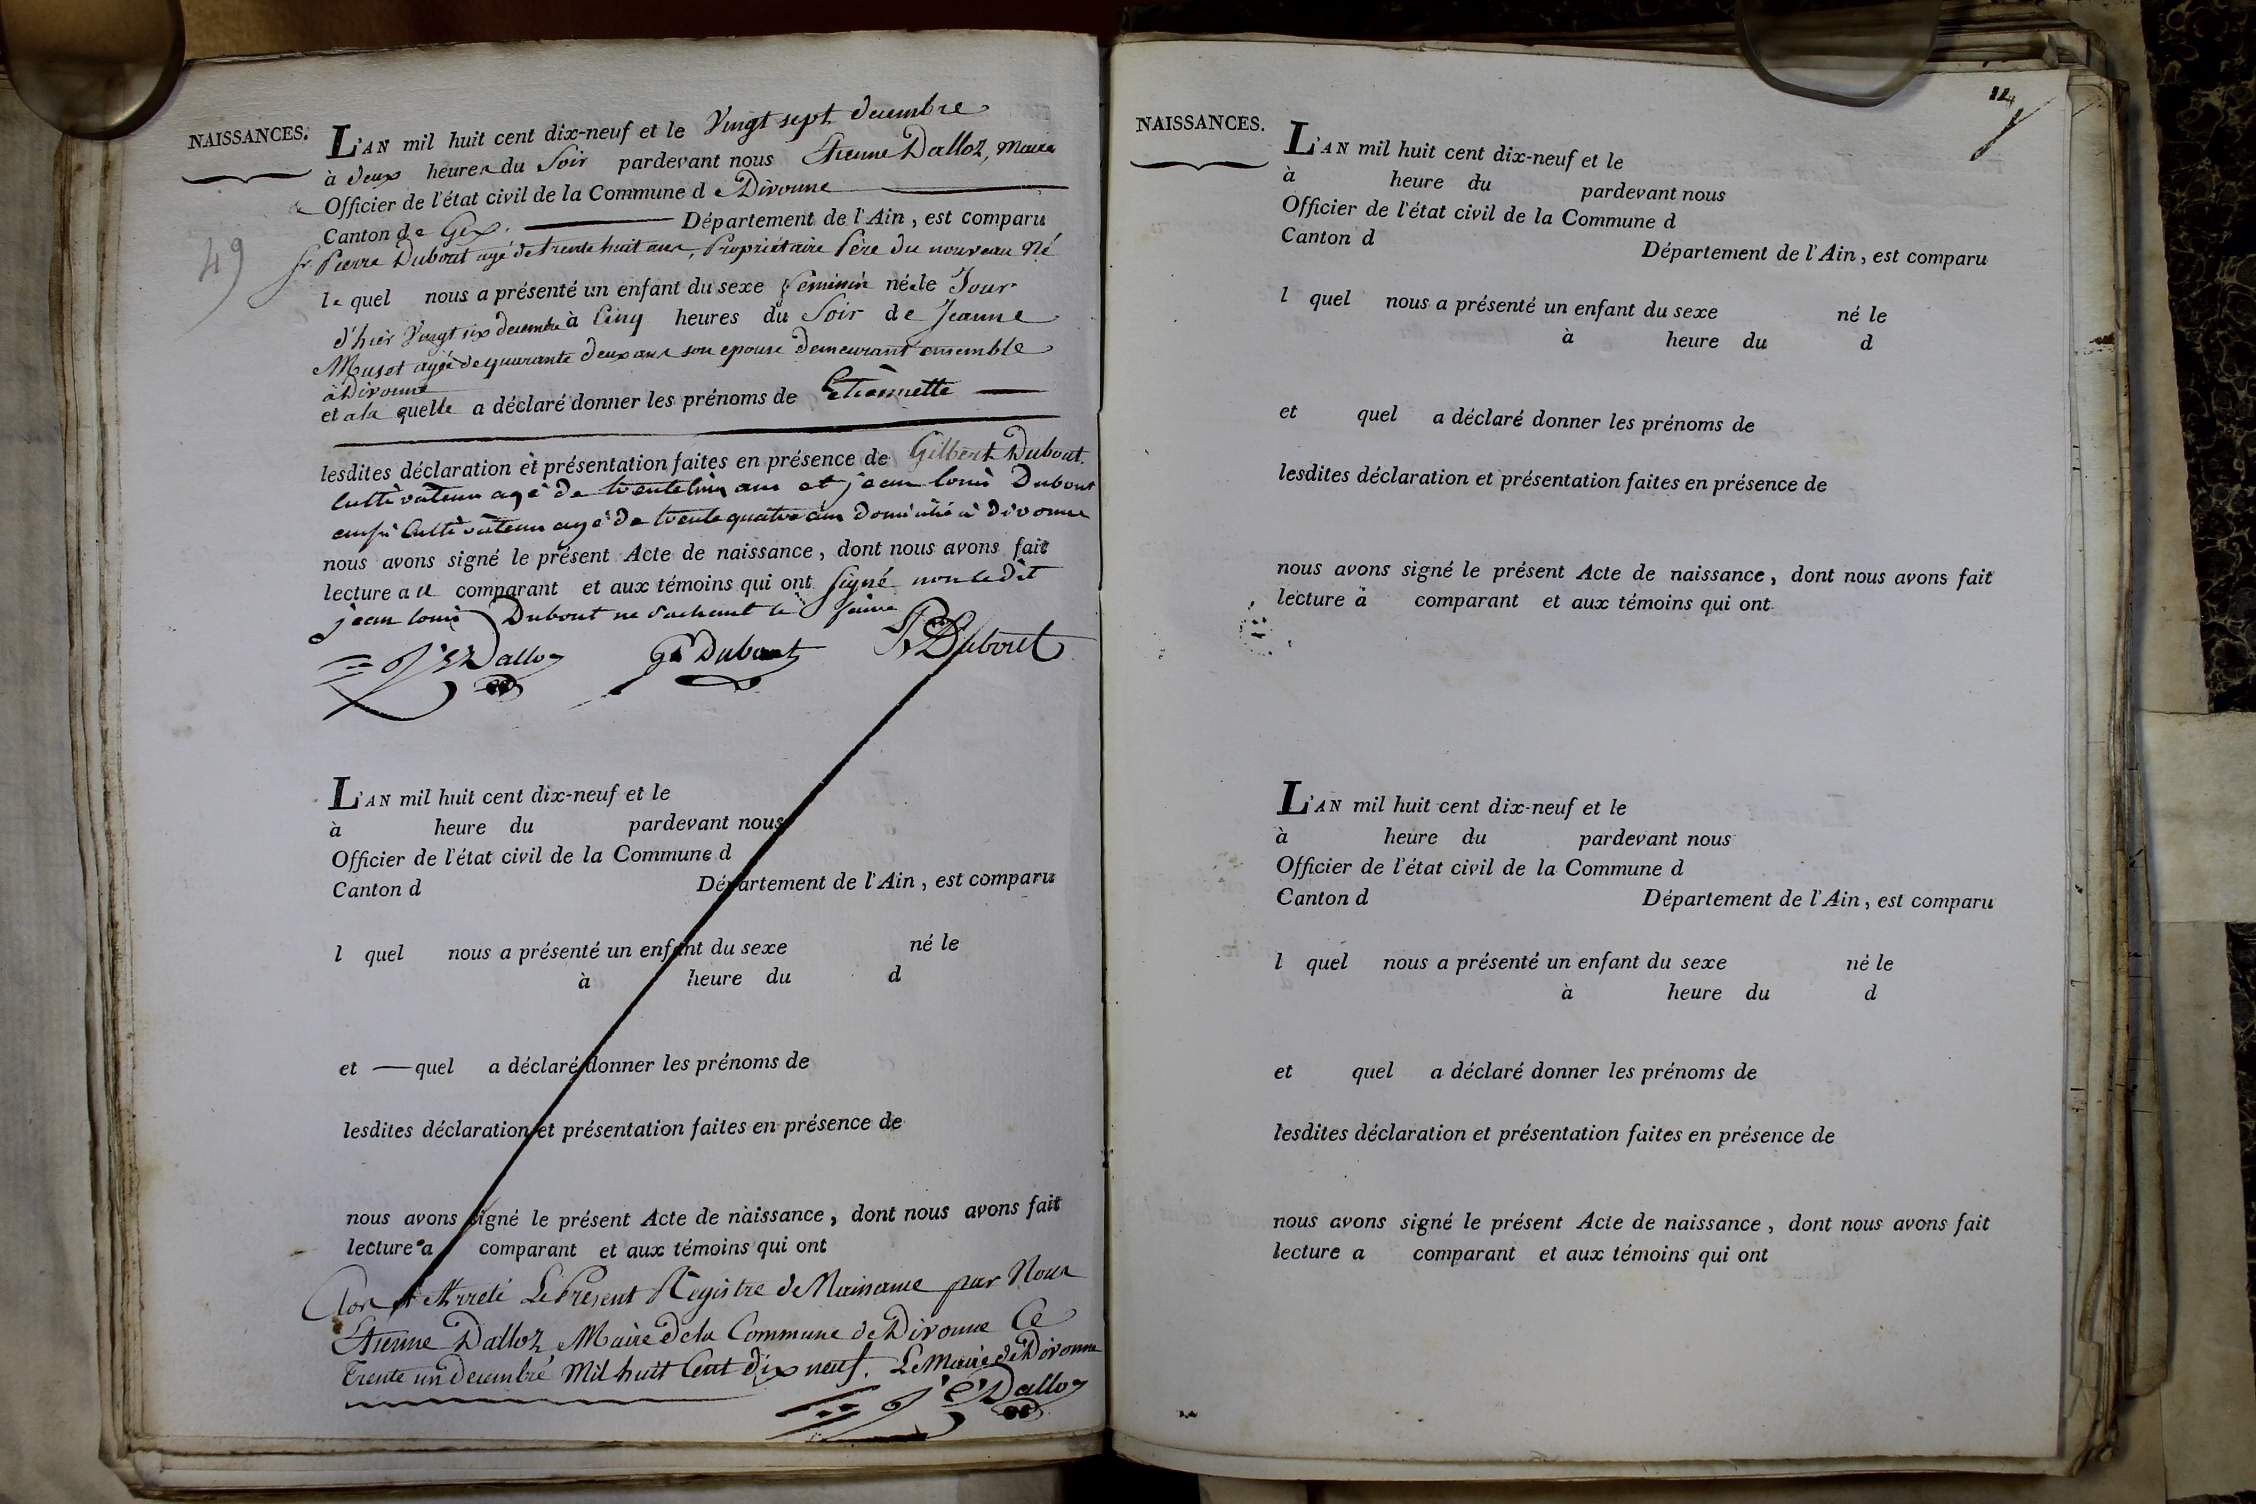 NAISSANCES.
L'AN mil huit cent dix-neuf et le Vingt sept decembre
à deux heures du Soir pardevant nous Etienne Dalloz, Maire
Officier de l'état civil de la Commune de Divonne
Canton de Gex. Département de l'Ain, est comparu
49
Sr. Pierre Dubout agé de trente huit ans, Propriétaire Père du nouveau Né
le quel nous a présenté un enfant du sexe feminin née le Jour
d'hier Vingt six decembre à Cinq heures du Soir de Jeanne
Muset agée de quarante deux ans son epouse demeurant ensemble
à Divonne
et a la quelle a déclaré donner les prénoms de Etiennette
lesdites déclaration et présentation faites en présence de Gilbert Dubout.
Cultivateur agé de trente cinq ans et jean louis Dubout
aussi Cultivateur agé de trente quatre ans domicilié à divonne
nous avons signé le présent Acte de naissance, dont nous avons fait
lecture au comparant et aux témoins qui ont signé non ledit
jean louis Dubout ne sachant le faire
Dalloz Gt Dubout Pr Dubout
L'AN mil huit cent dix-neuf et le
à heure du pardevant nous
Officier de l'état civil de la Commune d
Canton d Département de l'Ain, est comparu
l quel nous a présenté un enfant du sexe né le
à heure du d
et quel a déclaré donner les prénoms de
lesdites déclaration et présentation faites en présence de
nous avons signé le présent Acte de naissance, dont nous avons fait
lecture a comparant et aux témoins qui ont
Clos et Arreté Le Présent Registre de Naissance par Nous
Etienne Dalloz Maire de la Commune de Divonne Ce
Trente un Decembre Mil huit Cent dix neuf. Le Maire de Divonne
Dalloz
124
NAISSANCES.
L'AN mil huit cent dix-neuf et le
à heure du pardevant nous
Officier de l'état civil de la Commune d
Canton d Département de l'Ain, est comparu
l quel nous a présenté un enfant du sexe né le
à heure du d
et quel a déclaré donner les prénoms de
lesdites déclaration et présentation faites en présence de
nous avons signé le présent Acte de naissance, dont nous avons fait
lecture a comparant et aux témoins qui ont
L'AN mil huit cent dix-neuf et le
à heure du pardevant nous
Officier de l'état civil de la Commune d
Canton d Département de l'Ain, est comparu
l quel nous a présenté un enfant du sexe né le
à heure du d
et quel a déclaré donner les prénoms de
lesdites déclaration et présentation faites en présence de
nous avons signé le présent Acte de naissance, dont nous avons fait
lecture a comparant et aux témoins qui ont